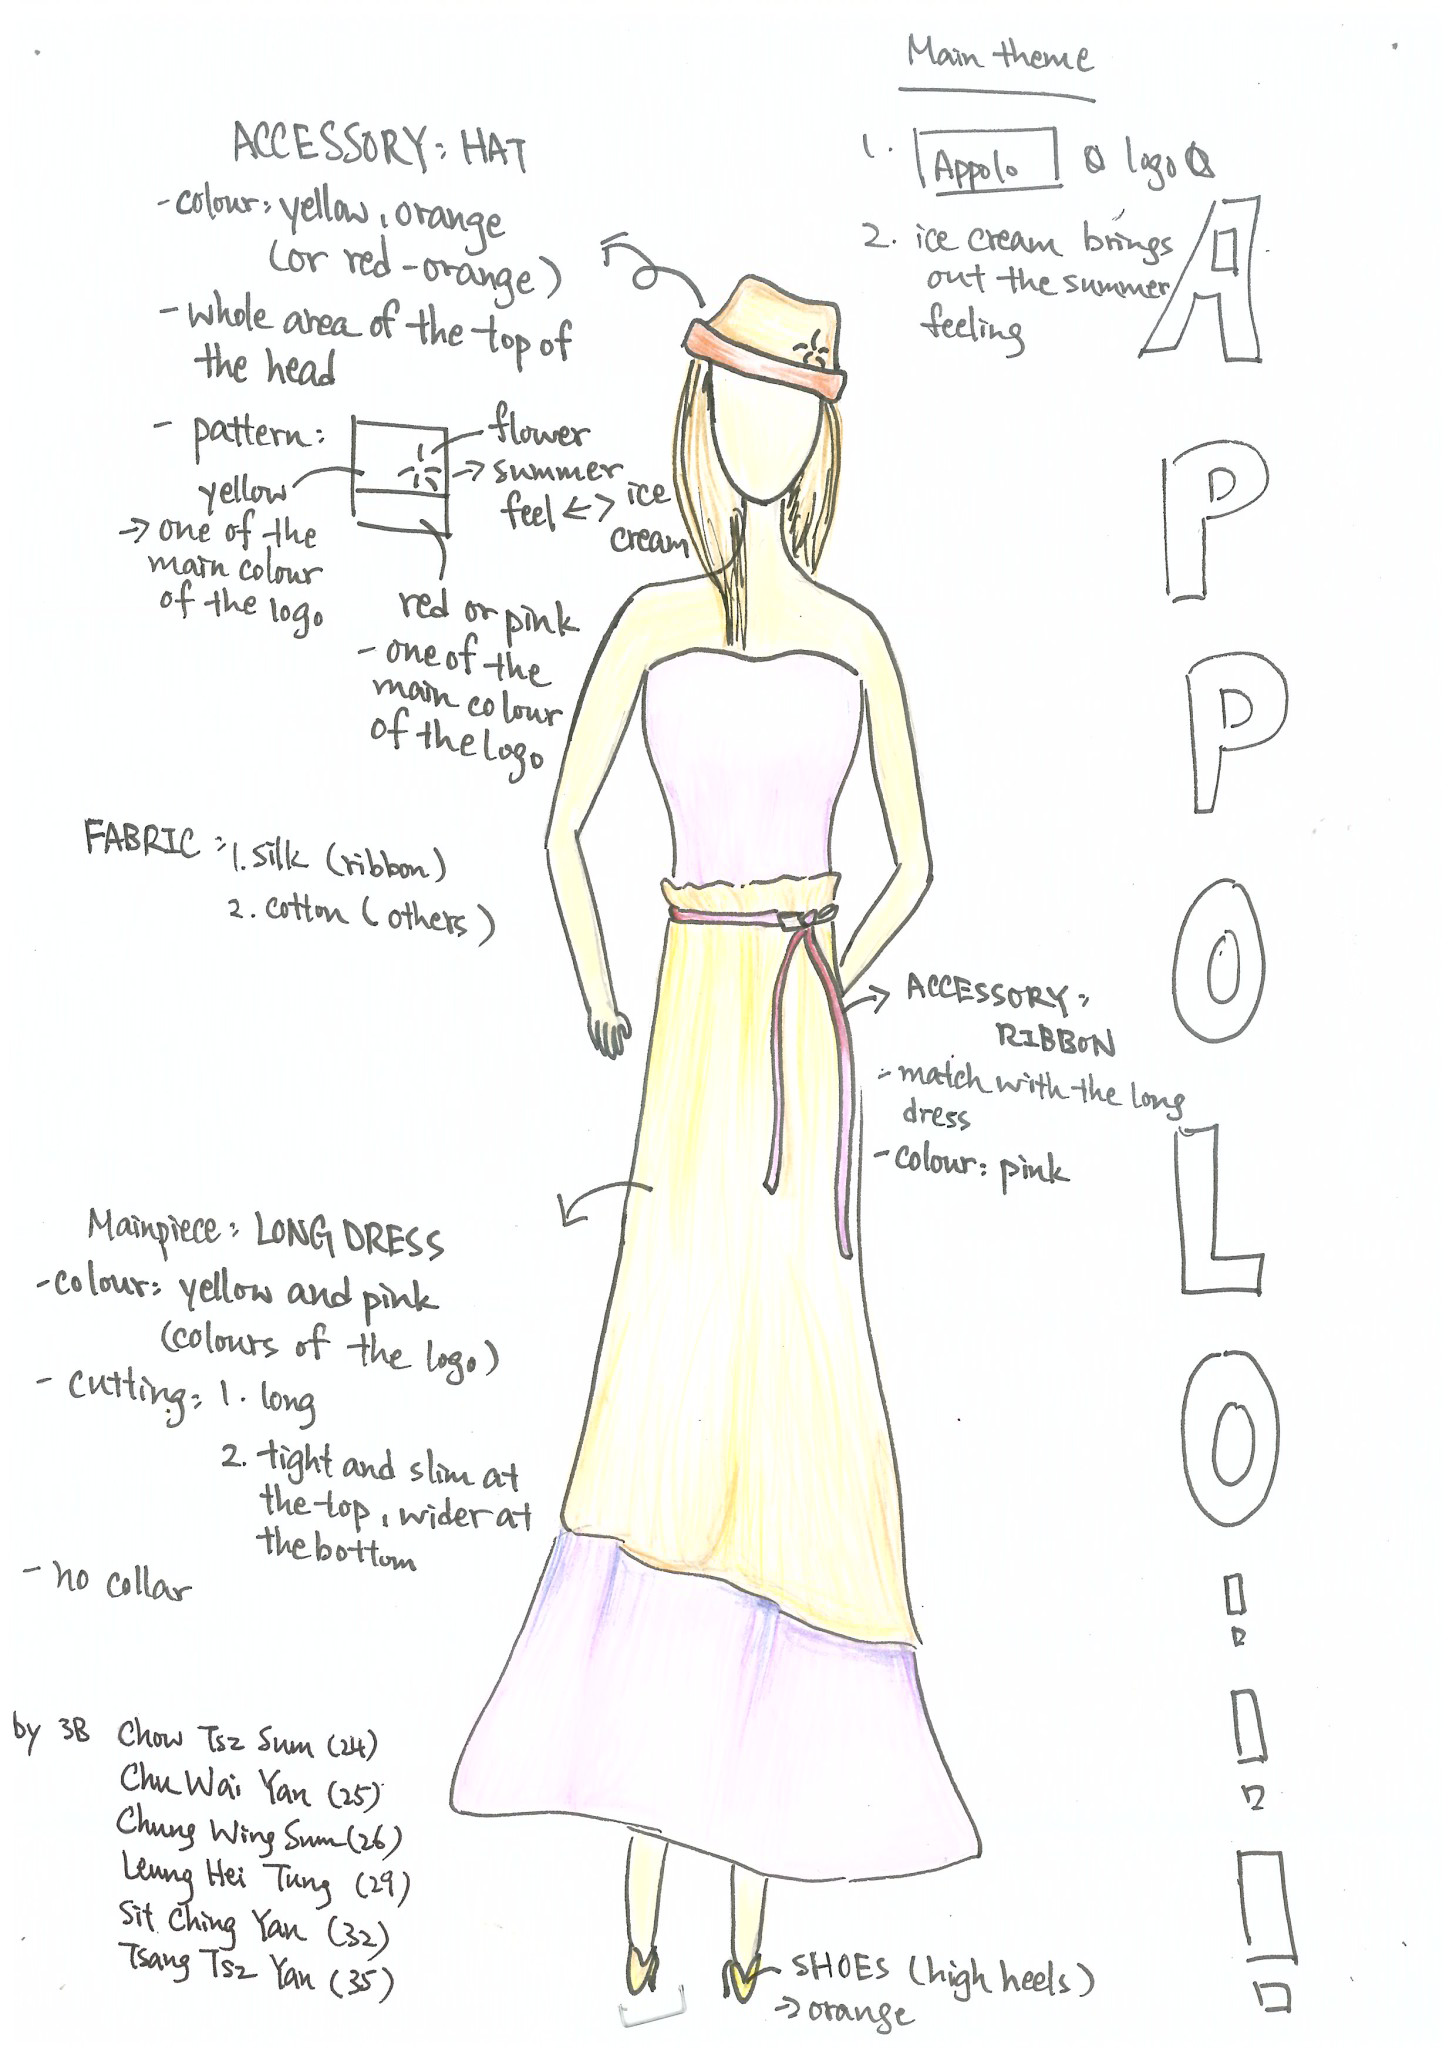 Main theme
1. Appolo logo
2. ice cream brings
out the summer
feeling
ACCESSORY: HAT
- colour: yellow, orange
(or red-orange)
- whole area of the top of
the head
- pattern:
flower
→ summer
feel <-> ice
cream
yellow
→ one of the
main colour
of the logo
red or pink
- one of the
main colour
of the logo
FABRIC: 1. silk (ribbon)
2. cotton (others)
ACCESSORY:
RIBBON
- match with the long
dress
- colour: pink
Mainpiece: LONG DRESS
- colour: yellow and pink
(colours of the logo)
- cutting: 1. long
2. tight and slim at
the top, wider at
the bottom
- no collar
by 3B Chow Tsz Sum (24)
Chu Wai Yan (25)
Chung Wing Sum (26)
Leung Hei Tung (29)
Sit Ching Yan (32)
Tsang Tsz Yan (35)
SHOES (high heels)
→ orange
A
P
P
O
L
O
!
!
!